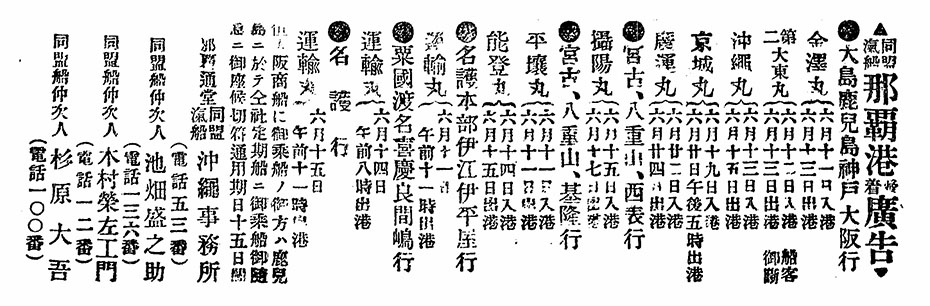 ▲同盟汽船那覇港發着廣告▼
●大島鹿兒島神戸大阪行
金澤丸 六月十一日入港 六月十三日出港
第二大東丸 六月十二日入港 六月十三日出港 船客御斷
沖繩丸 六月十四日入港 六月廿四日出港
京城丸 六月十九日入港 六月廿日午後五時出港
廣運丸 六月廿二日入港 六月廿四日出港
●宮古、八重山、西表行
攝陽丸 六月十五日入港 六月十七日出港
●宮古、八重山、基隆行
平壤丸 六月十一日入港 六月十一日出港
能登丸 六月十四日入港 六月十五日出港
●名護本部伊江伊平屋行
運輸丸 六月十一日 午前十一時出港
●粟國渡名喜慶良間嶋行
運輸丸 六月十四日 午前八時出港
●名護行
運輸丸 六月十五日 午前十一時出港
但大阪商船に御乘船ノ御方ハ鹿兒
島ニ於テ仝社定期船ニ御乘船御隨
意ニ御座候切符通用期日十五日間
那覇通堂 同盟汽船 沖繩事務所
(電話五三番)
同盟船仲次人 池畑盛之助
(電話一三六番)
同盟船仲次人 木村榮左工門
(電話一二番)
同盟船仲次人 杉原大吾
(電話一〇〇番)